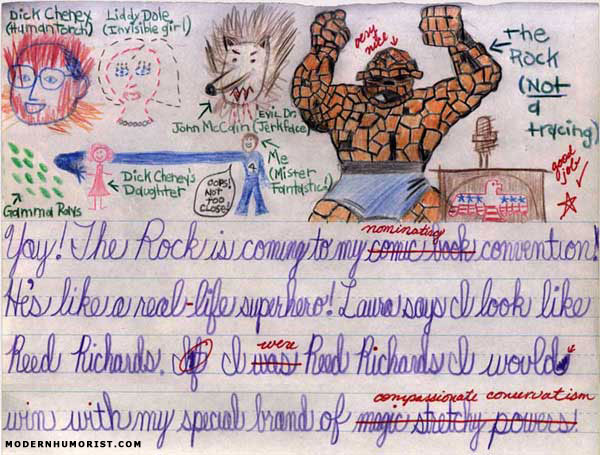 Dick Cheney
(Human Torch)
Liddy Dole
(Invisible girl)
very
nice
The
Rock
(Not
a
tracing)
Evil Dr.
John McCain (Jerkface)
Me
(Mister
Fantastic!)
4
Dick Cheney's
Daughter
OOPS!
NOT
TOO
CLOSE!
Gamma Rays
good
job
nominating
Yay! The Rock is coming to my comic book convention!
He's like a real-life superhero! Laura says I look like
were
Reed Richards. If I was Reed Richards I would
compassionate conservatism
win with my special brand of magic stretchy powers!
MODERNHUMORIST.COM